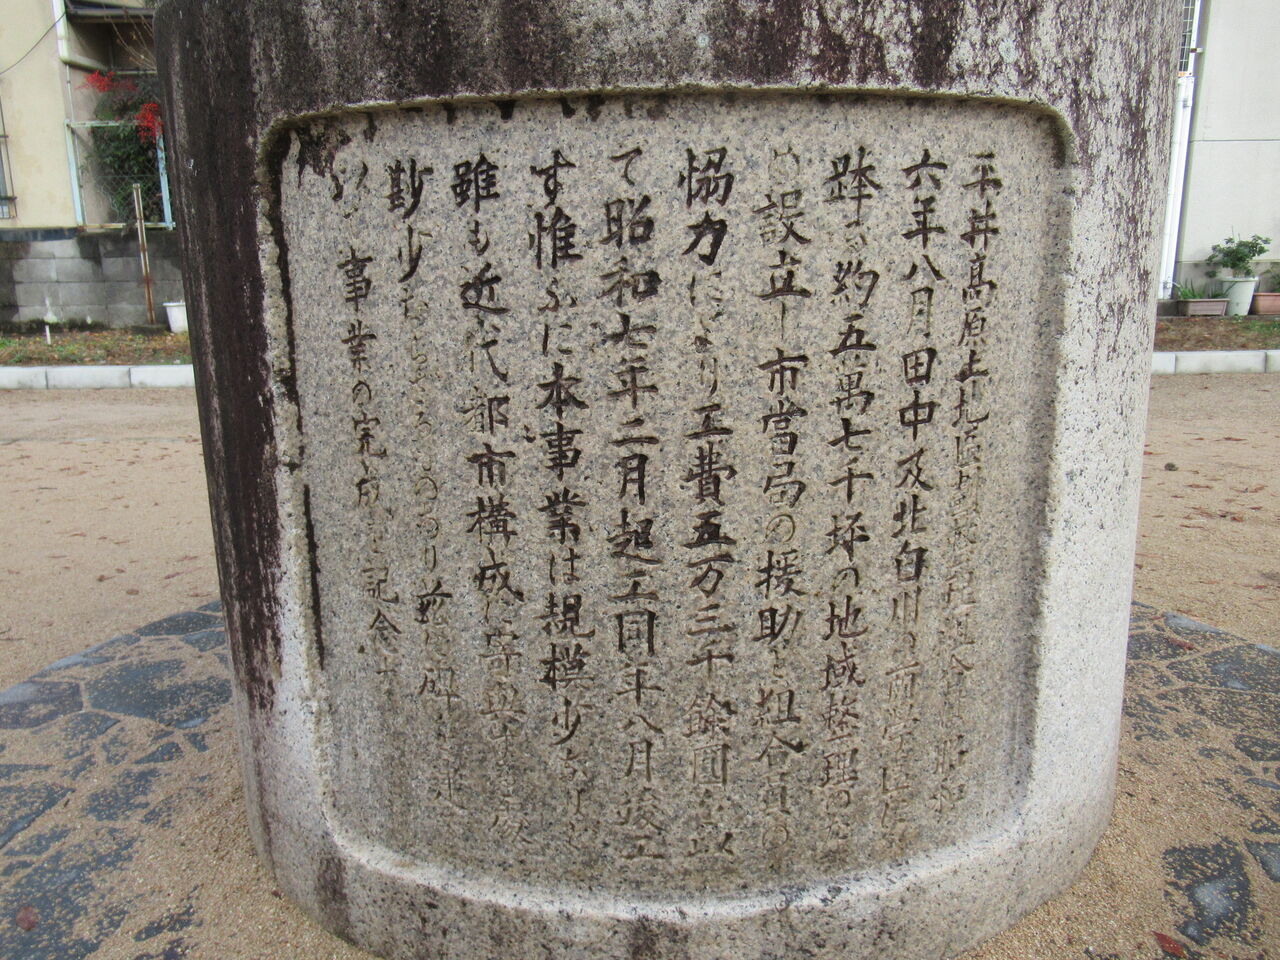 平井髙原土地區劃整理組合は昭和
六年八月田中及北白川の両学区に
跨る約五萬七千坪の地域整理のた
め設立し市當局の援助と組合員の
協力により工費五万三千餘圓を以
て昭和七年二月起工同年八月竣工
す惟ふに本事業は規模少なりと
雖も近代都市構成に寄與する處
尠少ならざるものあり茲に碑を建
以て事業の完成を記念す